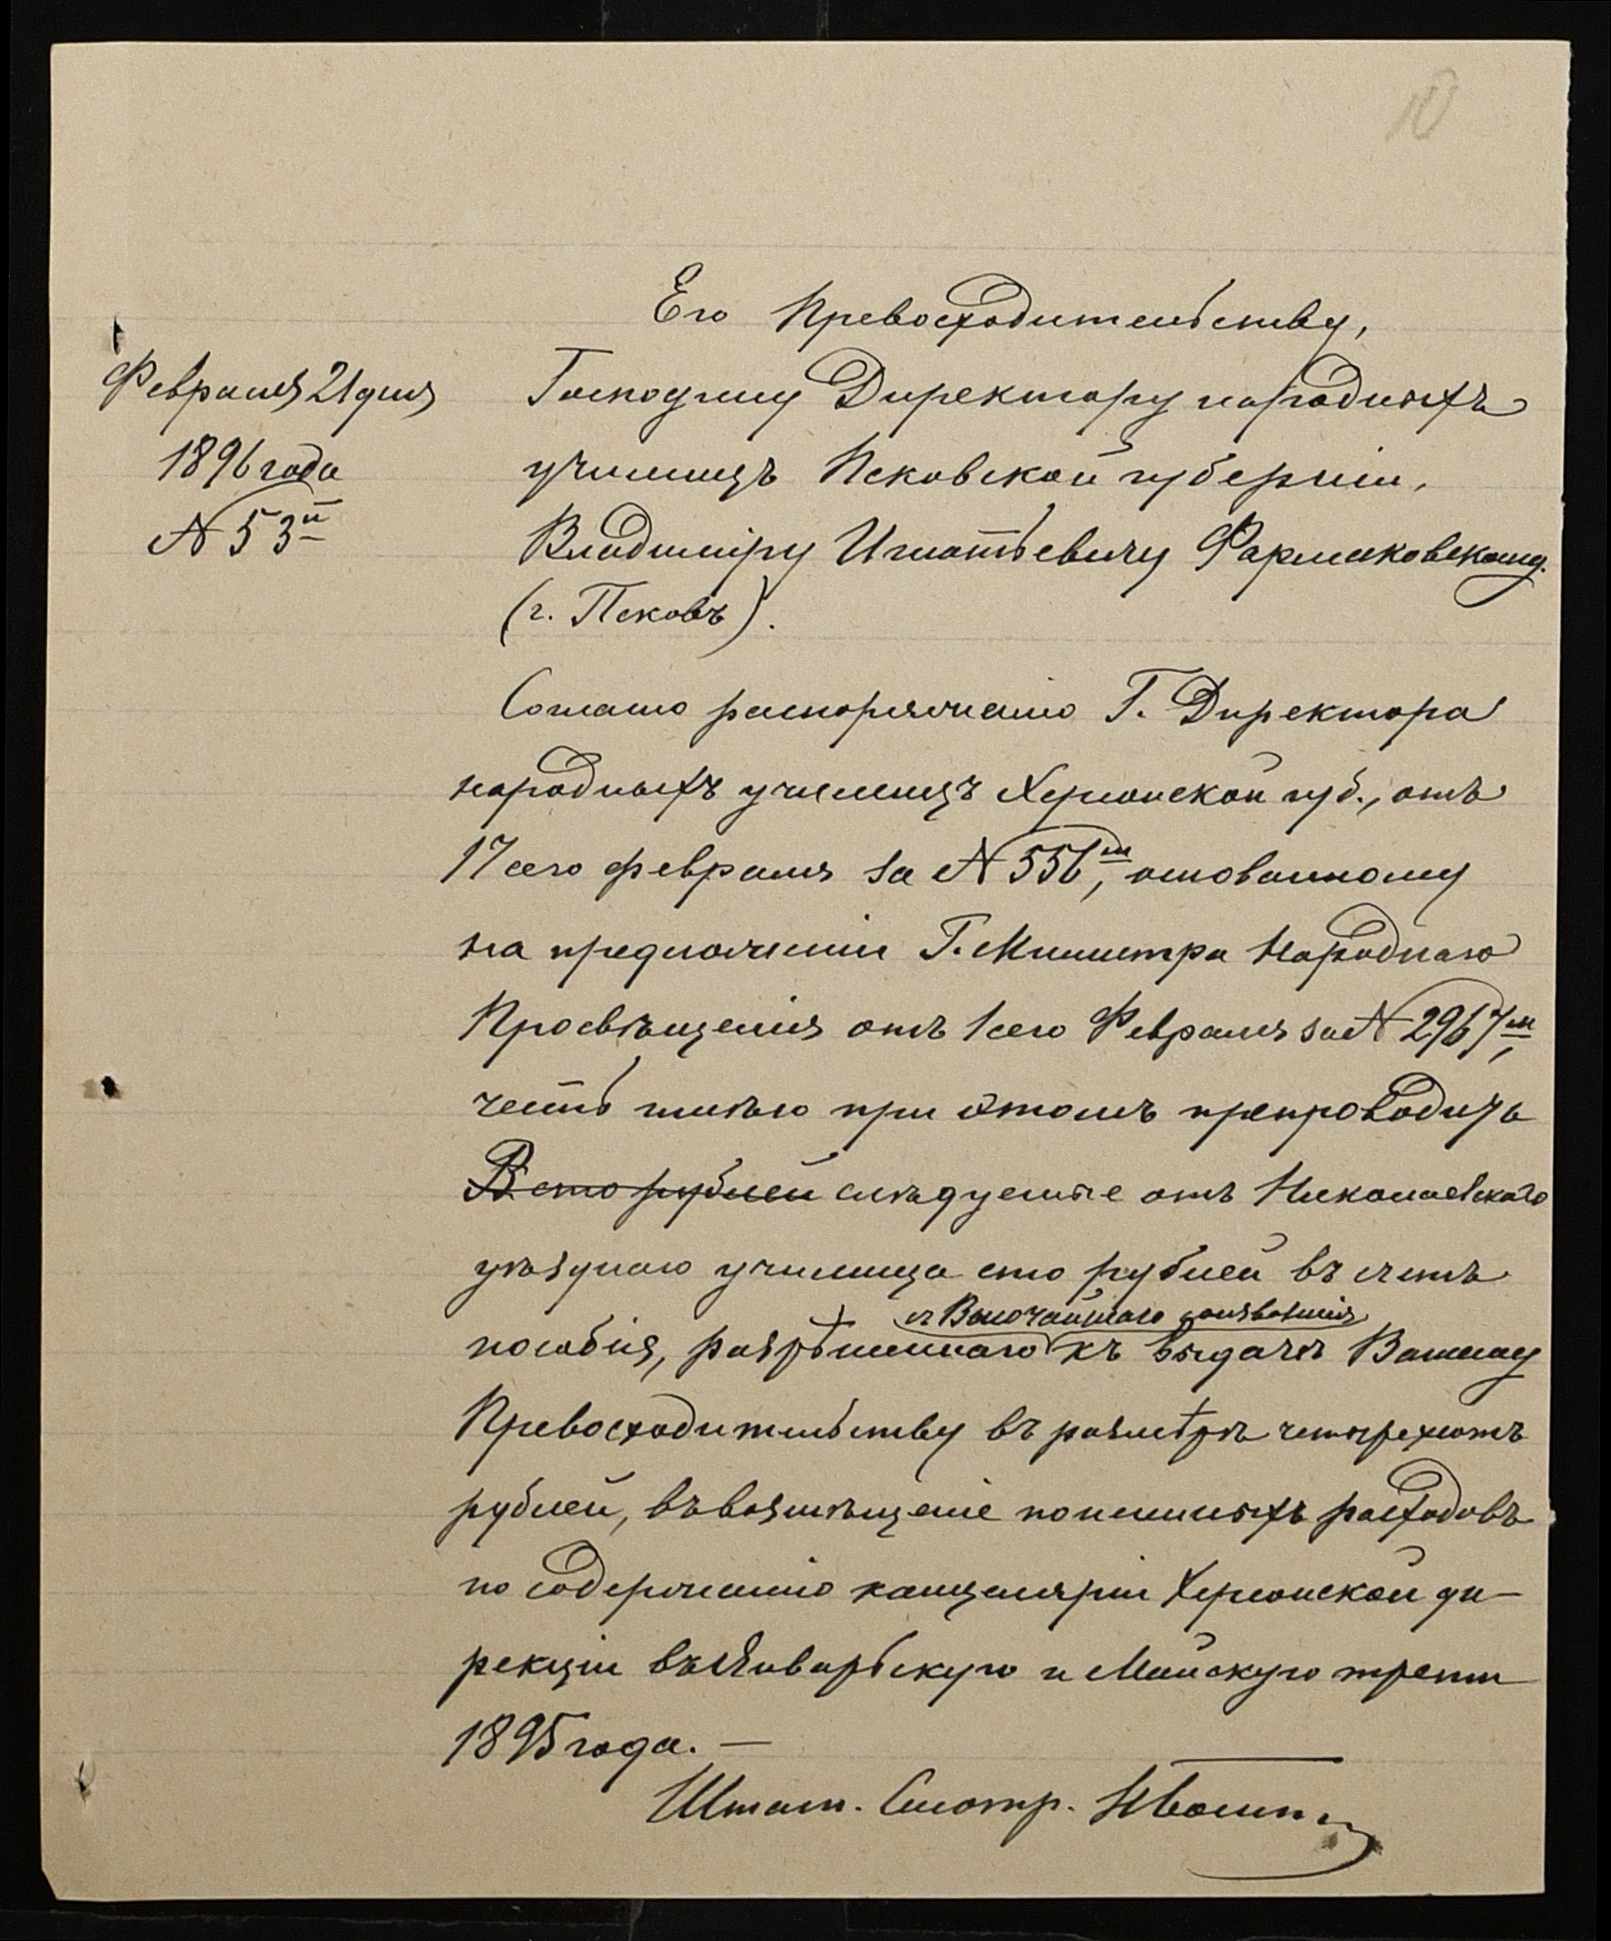 10
Его Превосходительству,
Февраля 21 дня
1896 года
№ 53й
Господину Директору народныхъ
училищъ Псковской губерніи,
Владиміру Игнатьевичу Фармаковскому.
(г. Псковъ).
Согласно распоряженію Г. Директора
народныхъ училищъ Херсонской губ., отъ
17 сего февраля за № 556м, основанному
на предложеніи Г. Министра Народнаго
Просвѣщенія отъ 1 сего Февраля за № 2967м,
честь имѣю при этомъ препроводить
В. сто рублей слѣдуемые отъ Николаевскаго
уѣзднаго училища сто рублей въ счетъ
съ Высочайшаго соизволенія
пособія, разрѣшеннаго къ выдачѣ Вашему
Превосходительству въ размѣрѣ четырехсотъ
рублей, въ возмѣщеніе понесенныхъ расходовъ
по содержанію канцеляріи Херсонской ди-
рекціи въ Январьскую и Майскую трети
1895 года. —
Штатн. Смотр.